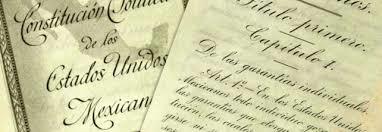 Constitución Política
de los
Estados Unidos
Mexican
Título primero.
Capítulo I.
De las garantías individuales
Art. 1º.- En los Estados Unidos
Mexicanos todo individuo goza
las garantías que otorga
tución, las cuales
girse ni